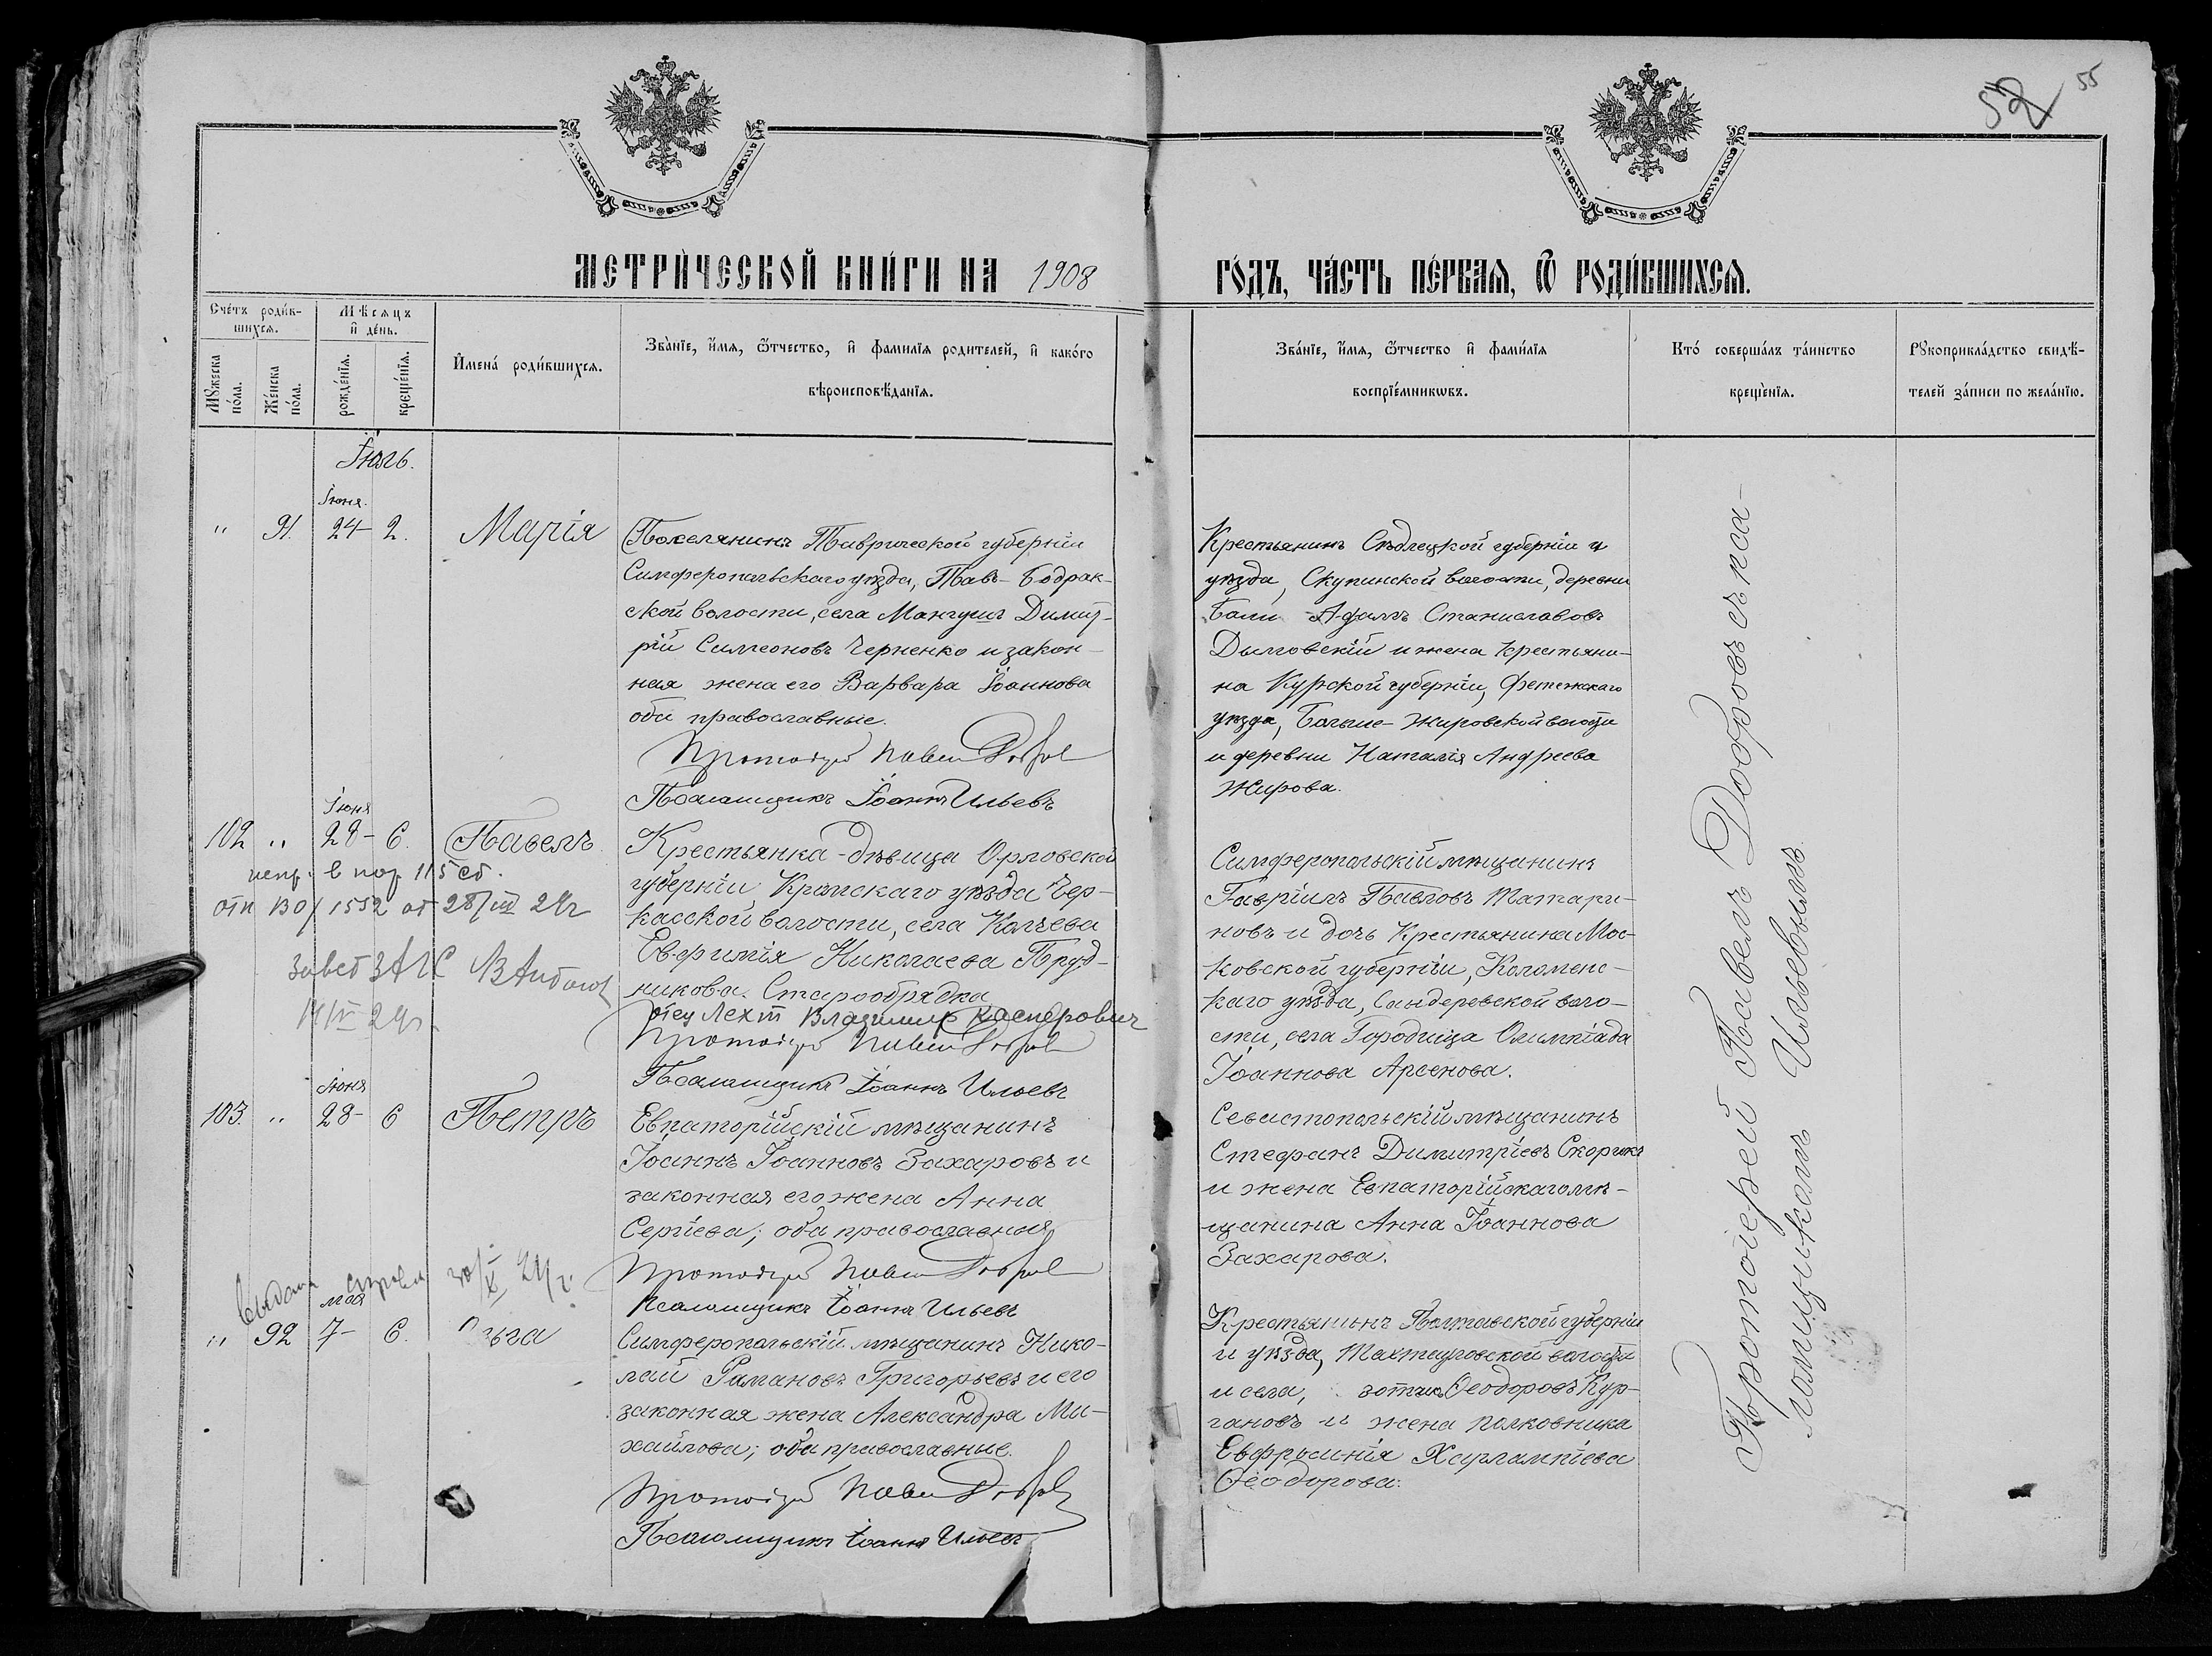 52 55
МЕТРИ́ЧЕСКОЙ КНИ́ГИ НА 1908
ГО́ДЪ, ЧА́СТЬ ПЕ́РВАЯ, Ѿ РОДИ́ВШИХСЯ.
Счётъ роди́в-
шихся.
Мѣсяцъ
и де́нь.
Мꙋ́жеска
по́ла.
Же́нска
по́ла.
рожде́нїя.
креще́нїя.
Имена́ роди́вшихся.
Зва́нїе, и́мя, ѻ́тчество, и фамилїя родителей, и како́го
вѣроисповѣданїя.
Зва́нїе, и́мя, ѻ́тчество и фами́лїя
воспрїе́мникѡвъ.
Кто́ соверша́лъ та́инство
креще́нїя.
Рꙋкоприкла́дство свидѣ́-
телей за́писи по жела́нїю.
Іюль.
Іюня.
" 91. 24- 2. Марія
Поселянинъ Таврической губерніи
Симферопольскаго уѣзда, Тавъ-Бодрак-
ской волости, села Мангушъ Димит-
рій Симеоновъ Черненко и закон-
ная жена его Варвара Іоаннова
оба православные.
Протоіерей Павел Добров
Псаломщикъ Іоаннъ Ильевъ
Крестьянинъ Сѣдлецкой губерніи и
уѣзда, Скупинской волости, деревни
Бали Адамъ Станиславовъ
Дымовскій и жена крестьяни-
на Курской губерніи, Фатежскаго
уѣзда, Больше-Жировской волости
и деревни Наталія Андреева
Жирова.
Іюня
102 " 28- 6. Павелъ
испр. в пор 115 ст.
отн ВО/1552 от 28/III 29г
Завед ЗАГС
29г.
Крестьянка-дѣвица Орловской
губерніи Кромскаго уѣзда Чер-
касской волости, села Колчева
Евфимія Николаева Пруд-
никова. Старообрядка
отец Лехт Владимир Касперович
Протоіерей Павел Добров
Псаломщикъ Іоаннъ Ильевъ
Симферопольскій мѣщанинъ
Гавріилъ Павловъ Татари-
новъ и дочь крестьянина Мос-
ковской губерніи, Коломенс-
каго уѣзда, Сандеревской воло-
сти, села Городища Олимпіада
Іоаннова Арсенова.
Іюня
103. " 28- 6 Петръ
Евпаторійскій мѣщанинъ
Іоаннъ Іоанновъ Захаровъ и
законная его жена Анна
Сергіева; оба православныя
Протоіерей Павел Добров
Псаломщикъ Іоаннъ Ильевъ
Севастопольскій мѣщанинъ
Стефанъ Димитріевъ
и жена Евпаторійскаго мѣ-
щанина Анна Іоаннова
Захарова.
Выдана справка
мая
" 92 7- 6. льга
Симферопольскій мѣщанинъ Нико-
лай Романовъ Григорьевъ и его
законная жена Александра Ми-
хайлова; оба православные.
Протоіерей Павел Добров
Псаломщикъ Іоаннъ Ильевъ
Крестьянинъ Полтавской губерніи
и уѣзда, волости
и села, Ѳеодоровъ Кур-
гановъ и жена полковника
Евфросинія Харлампіева
Ѳеодорова.
Протоіерей Павелъ Добровъ съ пса-
ломщикомъ Ильевымъ.